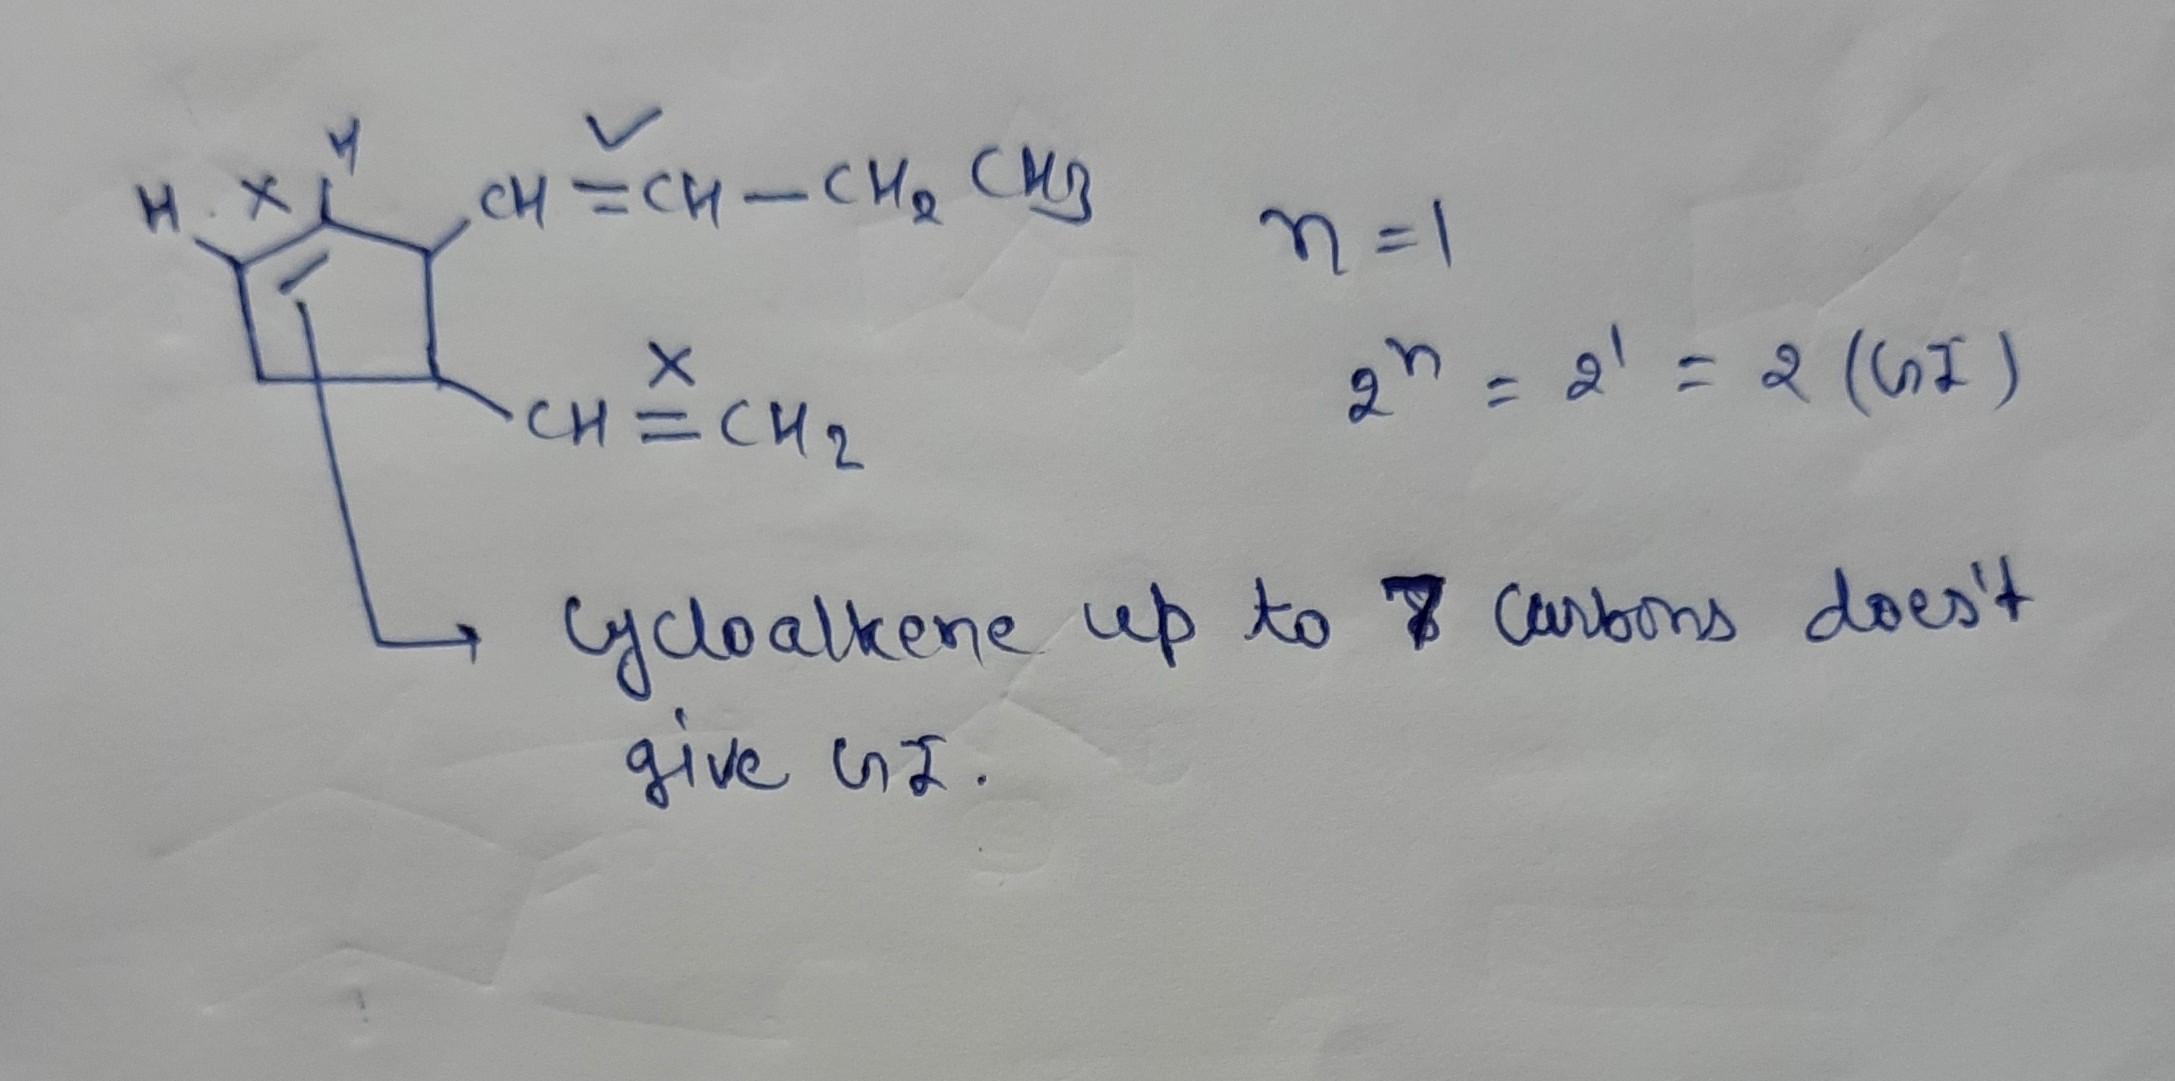 H
H X
CH = CH — CH₂ CH₃
✓
n = 1
X
CH = CH₂
2ⁿ = 2¹ = 2 (GI)
Cycloalkene up to 7 Carbons does't
give GI.